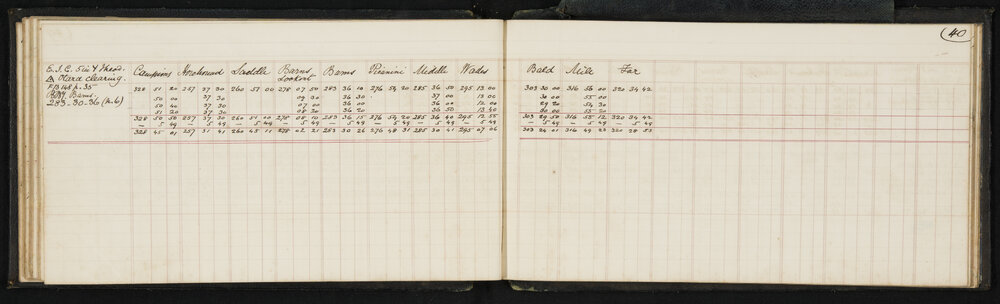 40
E.J.C. 5in & Theod. Campions Horehound Saddle Barns Lookout Barns Pirinini Middle Wades Bald Mile Far
△ Hard clearing.
FB 148 p. 35 328 51 20 257 37 30 260 57 00 278 07 50 283 36 10 276 54 20 285 36 50 295 13 00 303 30 00 316 56 00 320 34 42
Barns. 50 00 37 30 09 30 36 30 37 00 13 00 30 00 55 00
283-30-26 (p. 6) 50 40 37 30 07 00 36 00 36 00 12 00 29 20 54 30
51 20 37 30 08 20 36 20 36 50 13 40 30 00 55 20
328 50 50 257 37 30 260 51 00 278 08 10 283 36 15 276 54 20 285 36 40 295 12 55 303 29 50 316 55 12 320 34 42
– 5 49 – 5 49 – 5 49 – 5 49 – 5 49 – 5 49 – 5 49 – 5 49 – 5 49 – 5 49 – 5 49
328 45 01 257 31 41 260 45 11 278 02 21 283 30 26 276 48 31 285 30 41 295 07 06 303 24 01 316 49 23 320 28 53